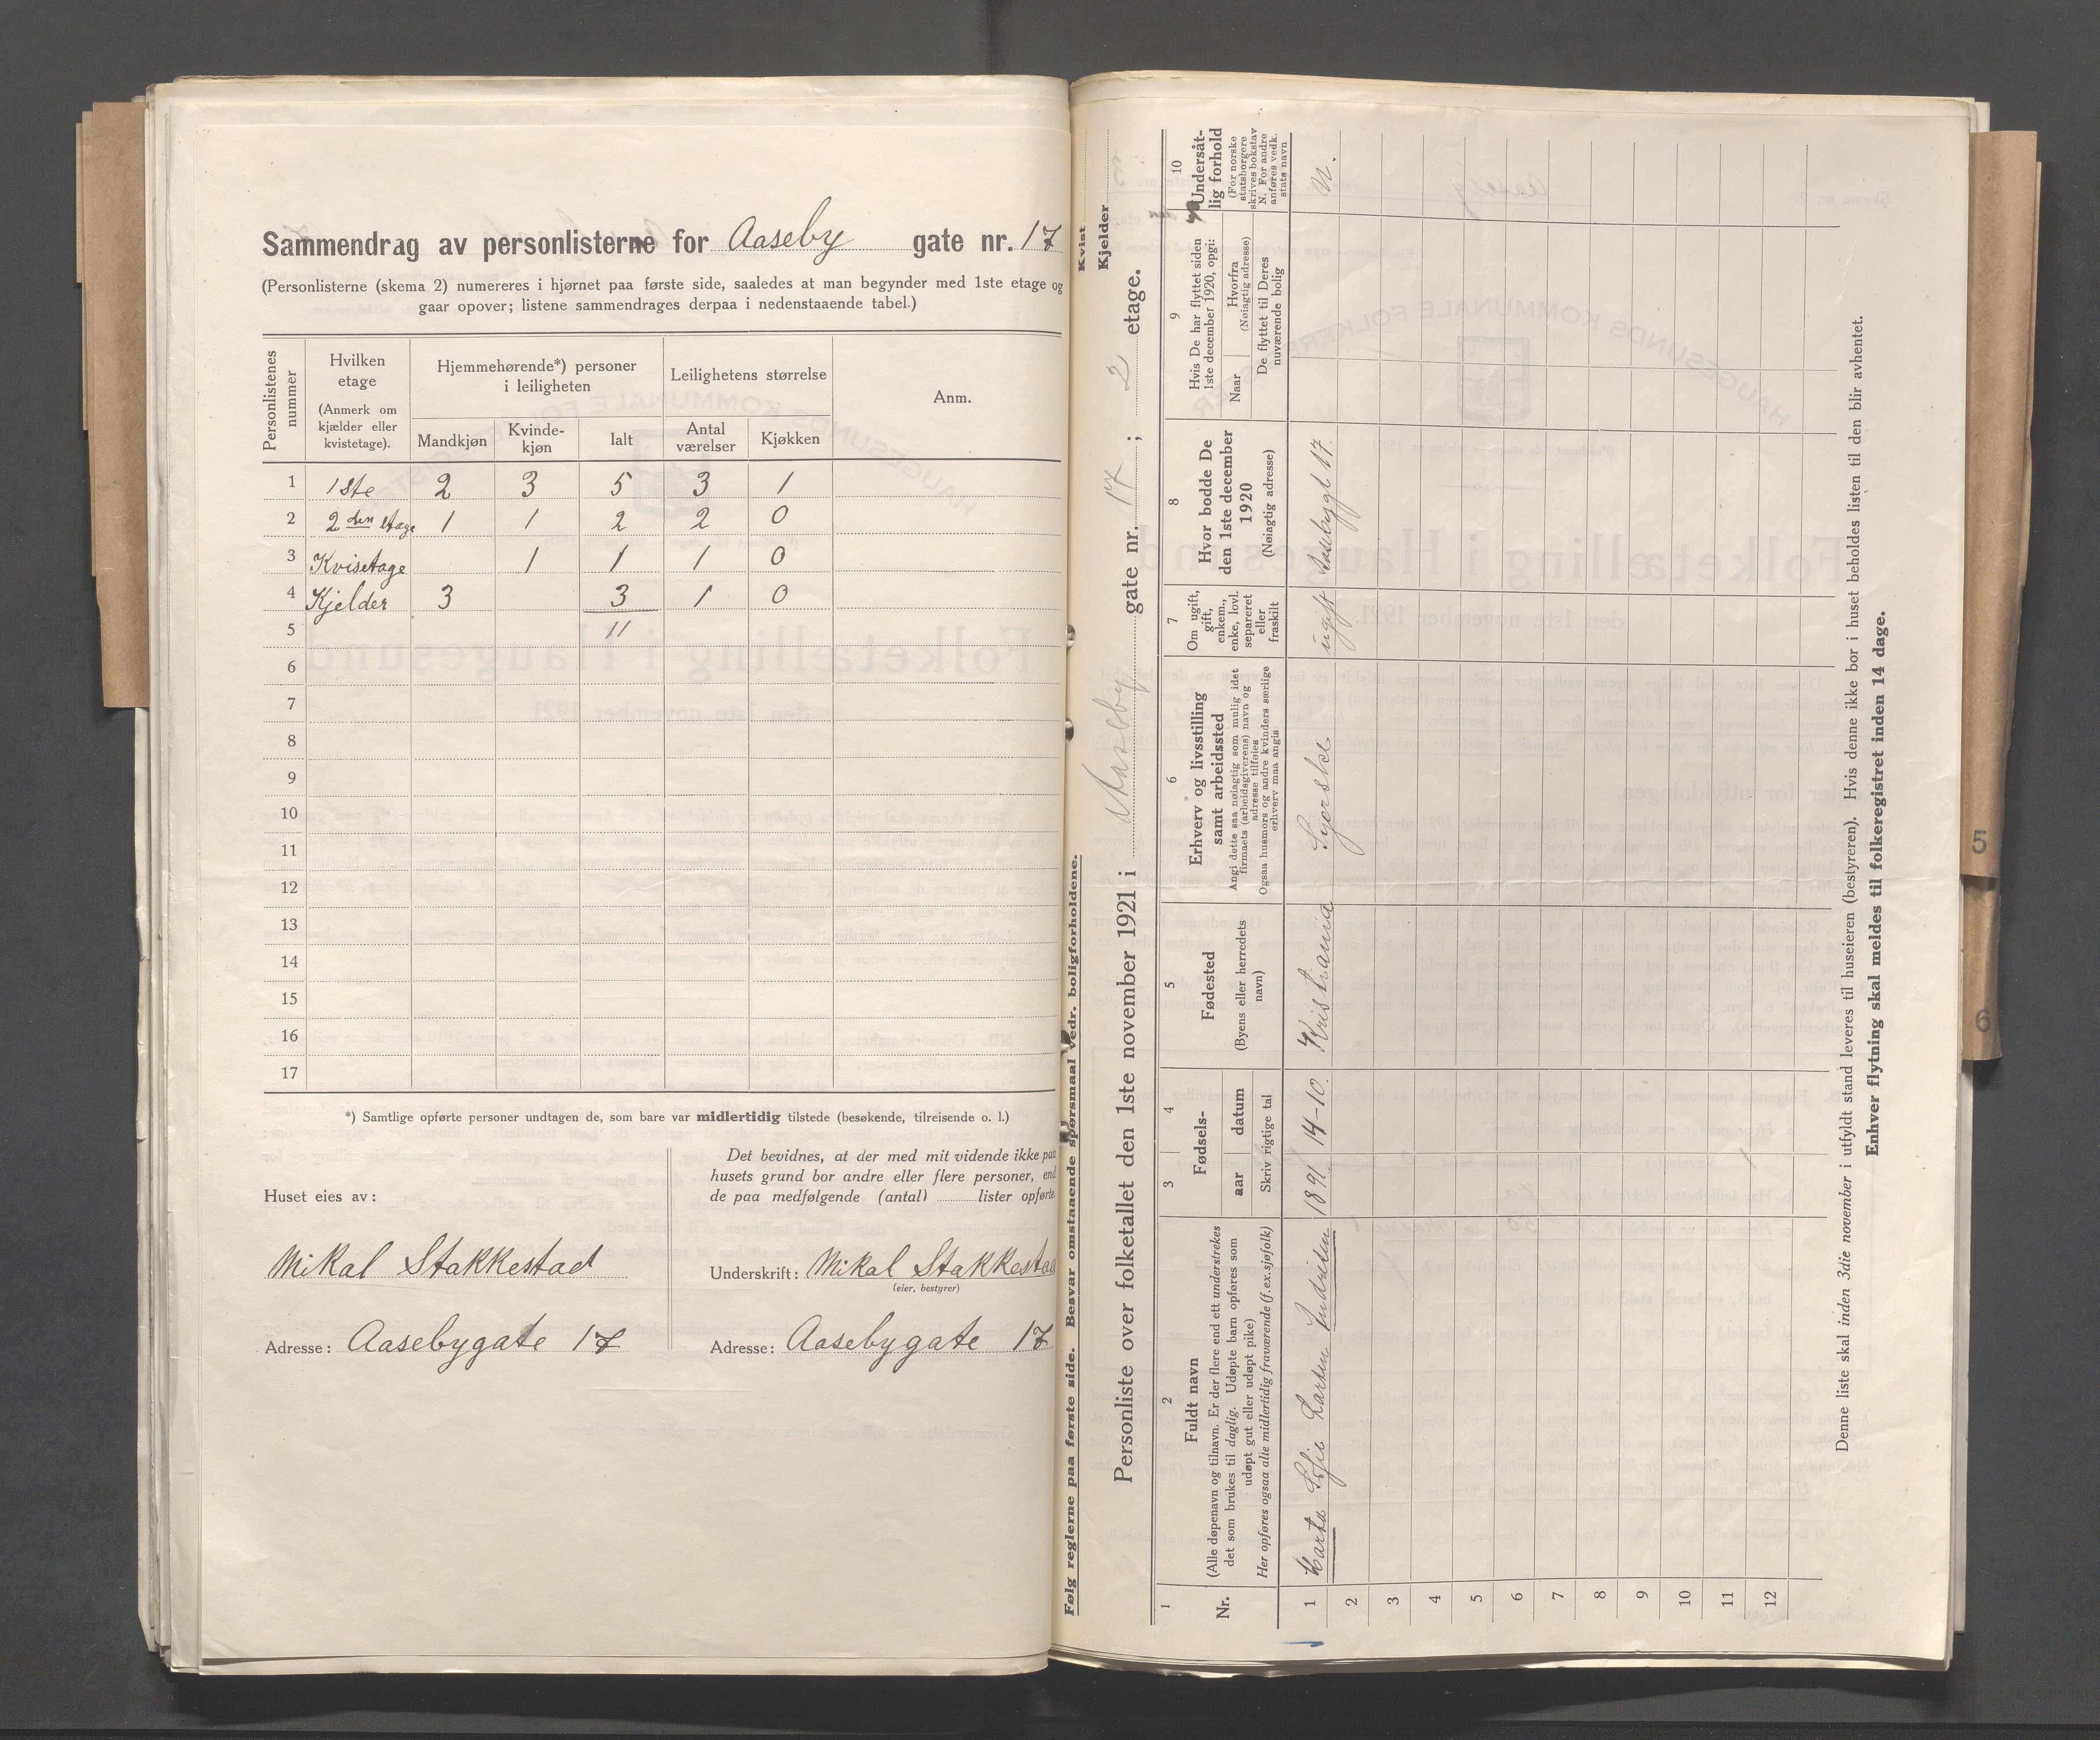 Sammendrag av personlisterne for Aaseby gate nr. 17
(Personlisterne (skema 2) numereres i hjørnet paa første side, saaledes at man begynder med 1ste etage og
gaar opover; listene sammendrages derpaa i nedenstaaende tabel.)
Personlistenes nummer
Hvilken etage (Anmerk om kjælder eller kvistetage).
Hjemmehørende*) personer i leiligheten
Leilighetens størrelse
Anm.
Mandkjøn Kvinde-kjøn Ialt Antal værelser Kjøkken
1 1ste 2 3 5 3 1
2 2den etage 1 1 2 2 0
3 Kvisetage 1 1 1 0
4 Kjelder 3 3 1 0
5 11
6
7
8
9
10
11
12
13
14
15
16
17
*) Samtlige opførte personer undtagen de, som bare var midlertidig tilstede (besøkende, tilreisende o. l.)
Huset eies av:
Mikal Stakkestad
Adresse: Aasebygate 17
Det bevidnes, at der med mit vidende ikke paa
husets grund bor andre eller flere personer, end
de paa medfølgende (antal) lister opførte
Underskrift: Mikal Stakkestad
(eier, bestyrer)
Adresse: Aasebygate 17
Følg reglerne paa første side. Besvar omstaaende spørsmaal vedr. boligforholdene.
Kvist
Kjelder
Personliste over folketallet den 1ste november 1921 i Aaseby gate nr. 17; 2 etage.
1
Nr.
2
Fuldt navn
(Alle døpenavn og tilnavn. Er der flere end ett understrekes
det som brukes til daglig. Udøpte barn opføres som
udøpt gut eller udøpt pike)
Her opføres ogsaa alle midlertidig fraværende (f.ex.sjøfolk)
3 4
Fødsels-
aar datum
Skriv rigtige tal
5
Fødested
(Byens eller herredets
navn)
6
Erhverv og livsstilling
samt arbeidssted
Angi dette saa nøiagtig som mulig idet
firmaets (arbeidsgiverens) navn og
adresse tilføies
Ogsaa husmors og andre kvinders særlige
erhverv maa angis
7
Om ugift,
gift,
enkem.,
enke, lovl.
separeret
eller
fraskilt
8
Hvor bodde De
den 1ste december
1920
(Nøiagtig adresse)
9
Hvis De har flyttet siden
1ste december 1920, opgi:
Naar
Hvorfra
(Nøiagtig adresse)
De flyttet til Deres
nuværende bolig
10
Undersåt-
lig forhold
(For norske
statsborgere
skrives bokstav
N. For andre
anføres vedk.
stats navn
1 Marta Sofie Larsen Indresen 1891 14-10. Kristiania Syerske ugift Aasebygt 17. N.
2
3
4
5
6
7
8
9
10
11
12
Denne liste skal inden 3die november i utfyldt stand leveres til huseieren (bestyreren). Hvis denne ikke bor i huset beholdes listen til den blir avhentet.
Enhver flytning skal meldes til folkeregistret inden 14 dage.
5
6